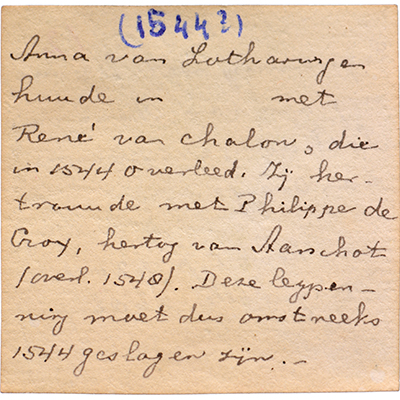 (1544?)
Anna van Lotharingen
huwde in met
René van Chalon, die
in 1544 overleed. Zij her-
trouwde met Philippe de
Croy, hertog van Aarschot
(overl. 1548). Deze leggpen-
ning moet dus omstreeks
1544 geslagen zijn. -